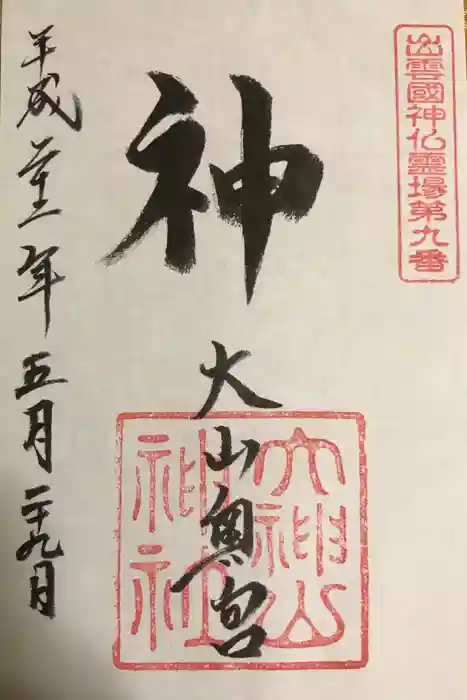 出雲國神仏霊場第九番
神
大山奥宮
大神山
神社
平成 年五月二十九日